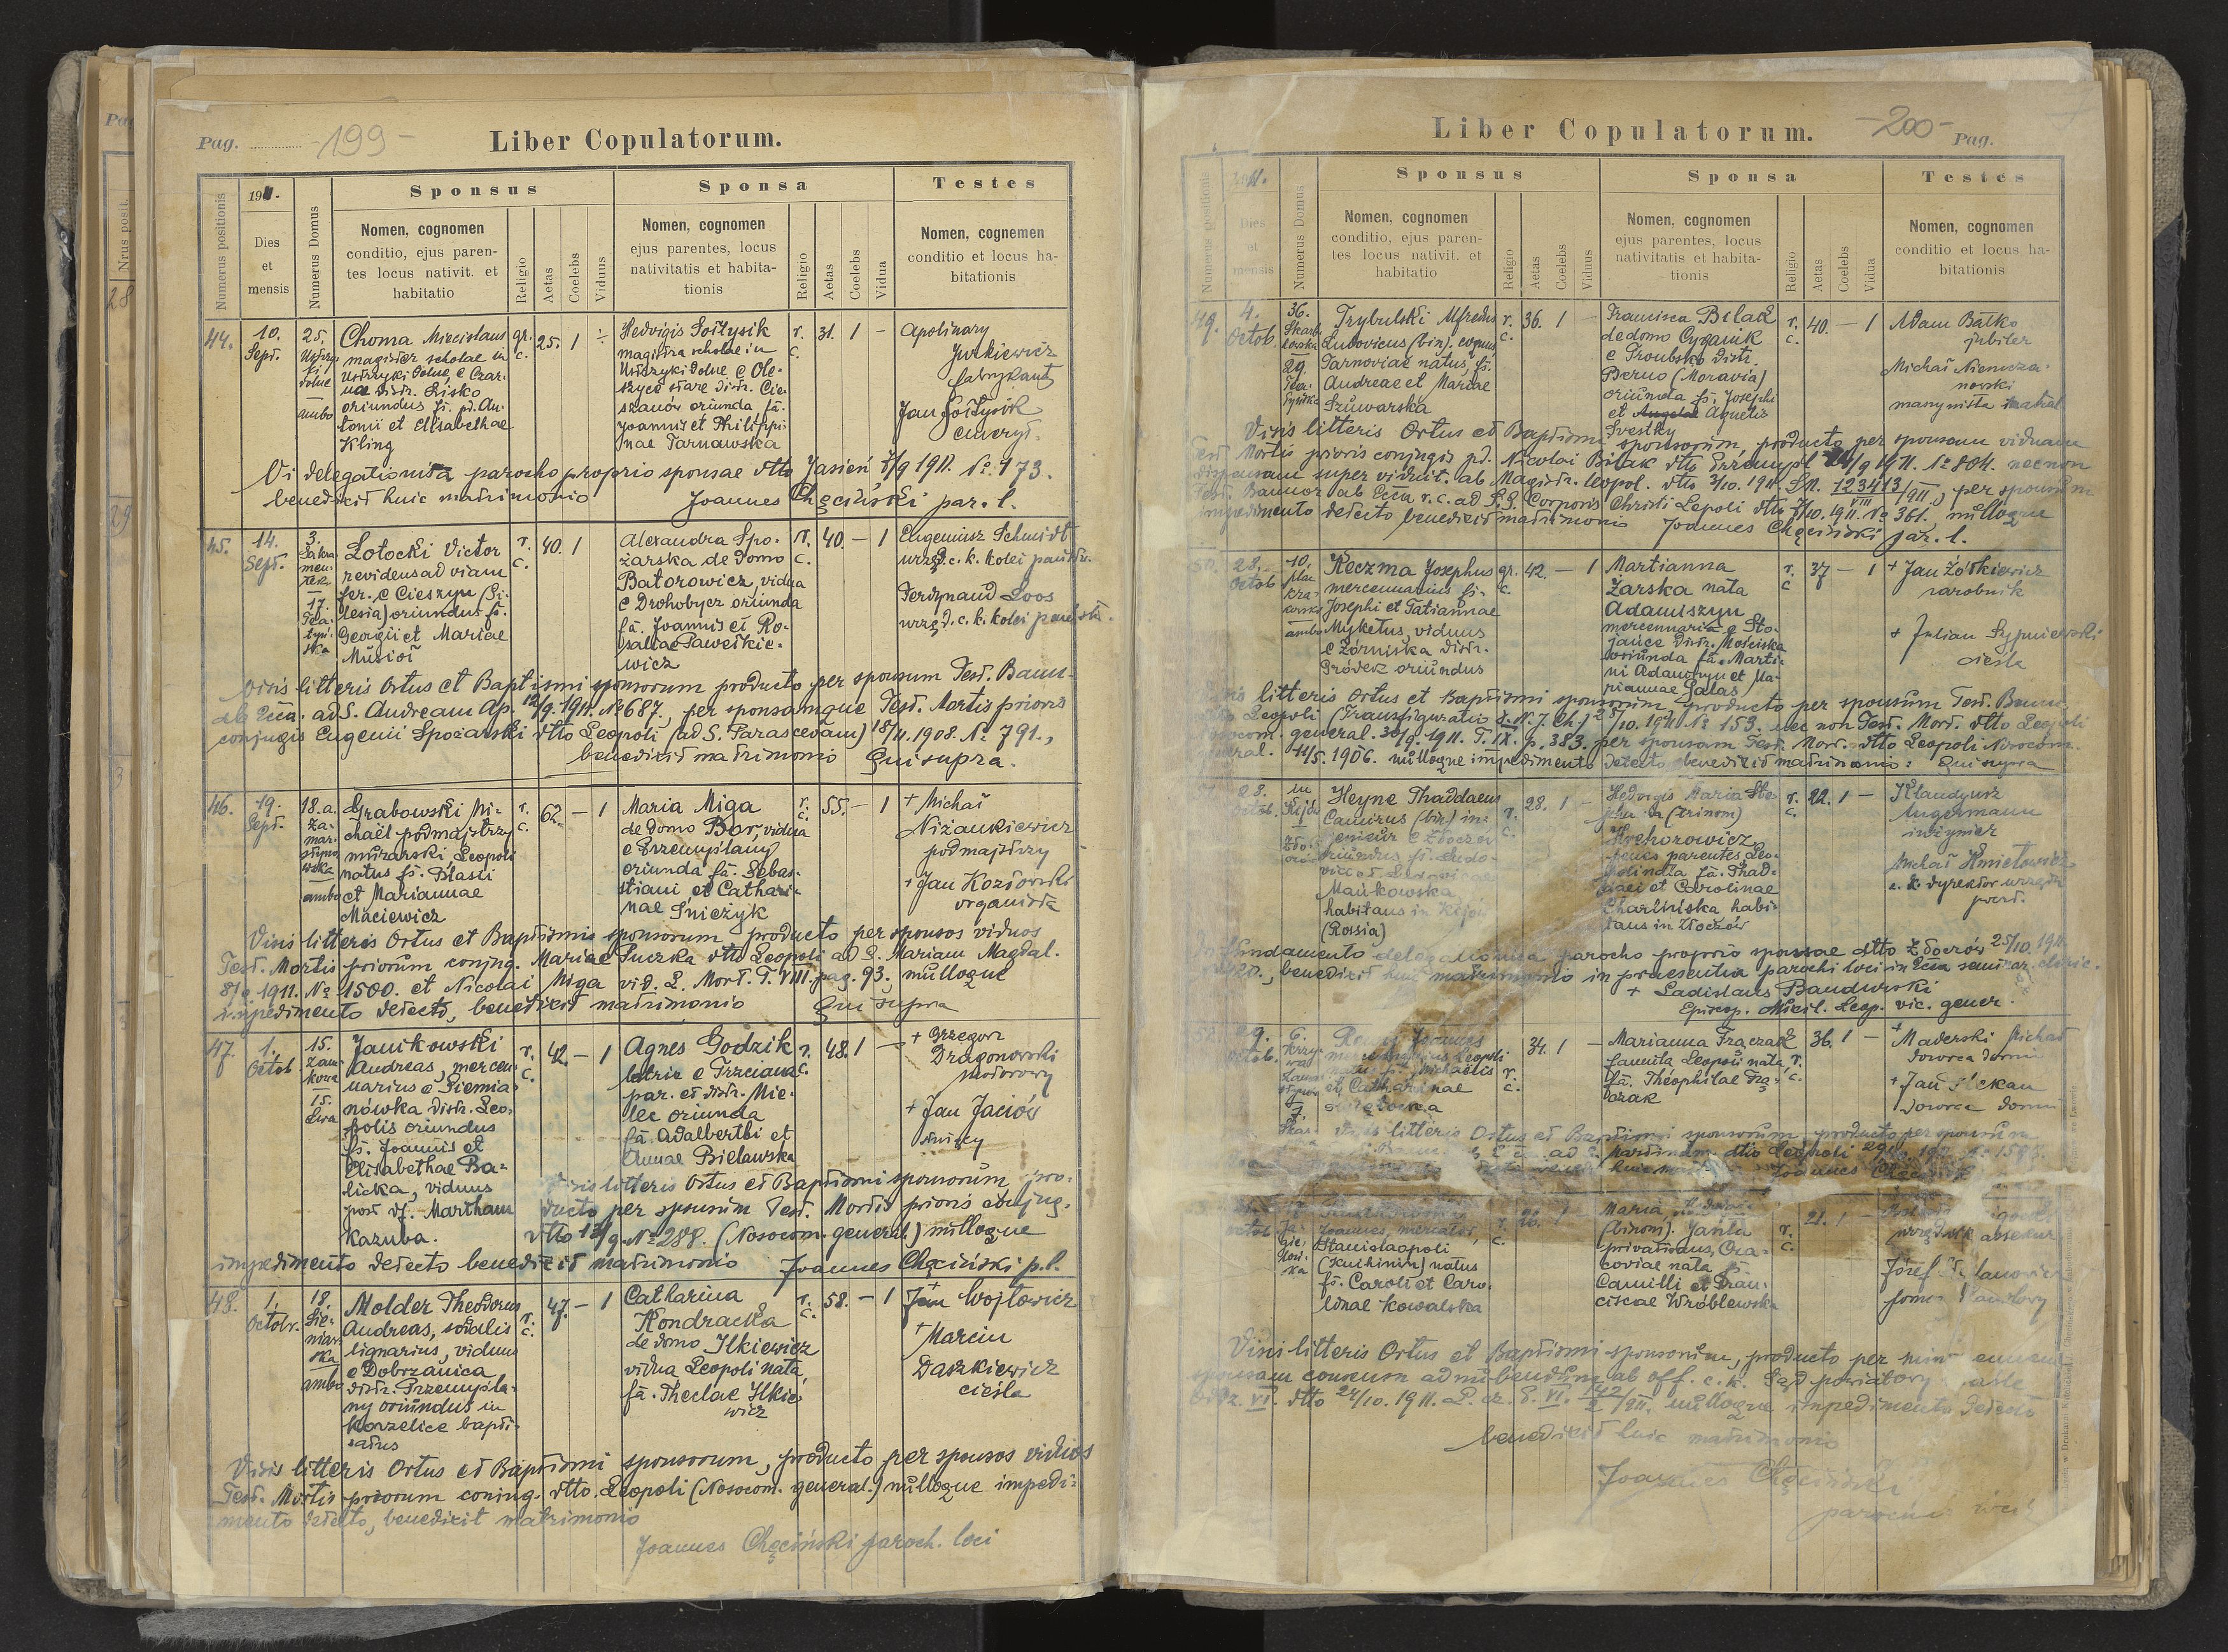 Pag. 199-
Liber Copulatorum.
Numerus positionis
1911.
Dies
et
mensis
Numerus Domus
Sponsus
Nomen, cognomen
conditio, ejus paren-
tes locus nativit. et
habitatio
Religio
Aetas
Coelebs
Viduus
Sponsa
Nomen, cognomen
ejus parentes, locus
nativitatis et habita-
tionis
Religio
Aetas
Coelebs
Vidua
Testes
Nomen, cognemen
conditio et locus ha-
bitationis
44.
10.
Sept.
25.
Ustrzy-
ki
dolne
ambo
Choma Miecislaus
magister scholae in
Ustrzyki dolne, e Czar-
na distr. Lisko
oriundus fs. pd. An-
tonii et Elisabethae
Kling
gr.
c.
25.
1
Hedvigis Sołtysik
magistra scholae in
Ustrzyki dolne e Ole-
szyce stare distr. Cie-
szanów oriunda fa.
Joannis et Philippi-
nae Tarnawska
r.
c.
31.
1
-
Apolinary
Jurkiewicz
fabrykant
Jan Sołtysik
emeryt.
Vi delegationis a parocho proprio sponsae dtto Jasień 7/9 1911. No. 173.
benedixit huic matrimonio Joannes Chęciński par. l.
45.
14.
Sept.
3.
Sakra-
men-
tek
17.
Lotocki Victor
revidens ad viam
fer. e Cieszyn (Si-
lesia) oriundus fs.
Georgii et Mariae
Musioł
r.
c.
40.
1
Alexandra Spo-
żarska de domo
Batorowicz, vidua
e Drohobycz oriunda
fa. Joannis et Ro-
saliae Pawełkie-
wicz
r.
c.
40.
-
1
Eugeniusz Schmidt
urzęd. c. k. kolei państw.
Ferdynand Loos
urzęd. c. k. kolei państw.
Visis litteris Ortus et Baptismi sponsorum producto per sponsum Test. Bann.
ab Eccla. ad S. Andream Ap. 12/9. 1911. No 687., per sponsamque Test. Mortis prioris
conjugis Eugenii Spożarski dtto Leopoli (ad S. Parascevam) 18/11. 1908. No 791.,
benedixit matrimonio Qui supra.
46.
19.
Sept.
18.a.
Za-
mar-
stynow-
ska
ambo
Grabowski Mi-
chaël podmajstrzy
murarski, Leopoli
natus fs. Blasii
et Mariannae
Maciewicz
r.
c.
62.
-
1
Maria Miga
de domo Bar, vidua
e Przemyślany
oriunda fa. Sebas-
tiani et Cathari-
nae Śnieżyk
r.
c.
55.
-
1
+ Michał
Niżankiewicz
podmajstrzy
+ Jan Kozłowski
organista
Visis litteris Ortus et Baptismi sponsorum producto per sponsos viduos
Test. Mortis priorum conjug. Mariae dtto Leopoli ad S. Mariam Magdal.
8/9. 1911. No 1500. et Nicolai Miga vid. L. Mort. T. VIII. pag. 93., nulloque
impedimento detecto, benedixit matrimonio Qui supra
47.
1.
Octob.
15.
Zam-
kowa
15.
Lwa
Janikowski
Andreas, mercen-
narius e Siemia-
nówka distr. Leo-
polis oriundus
fs. Joannis et
Elisabethae Ba-
licka, viduus
post df. Martham
Kaznba.
r.
c.
42.
-
1
Agnes Godzik
lotrix e Trzciana
par. et distr. Mie-
lec oriunda
fa. Adalberthi et
Annae Bielawska
r.
c.
48.
1
-
+ Grzegorz
Dragonowski
+ Jan Jaciów
Visis litteris Ortus et Baptismi sponsorum, pro-
ducto per sponsum Test. Mortis prioris conjug.
dtto 13/9. No 288. (Nosocom. general.) nulloque
impedimento detecto benedixit matrimonio Joannes Chęciński p.l.
48.
1.
Octobr.
18.
Sie-
niaw-
ska
ambo
Molder Theodorus
Andreas, sodalis
lignarius, viduus
e Dobrzanica
distr. Przemyśla-
ny oriundus in
Korzelice bapti-
satus
r.
c.
47.
-
1
Catharina
Kondracka
de domo Ilkiewicz
vidua Leopoli nata,
fa. Theclae Ilkie-
wicz
r.
c.
58.
-
1
+ Jan Wojtowicz
+ Marcin
Daszkiewicz
cieśla
Visis litteris Ortus et Baptismi sponsorum, producto per sponsos viduos
Test. Mortis priorum coniug. dtto. Leopoli (Nosocom. general.) nulloque impedi-
mento detecto, benedixit matrimonio
Joannes Chęciński paroch. loci
Liber Copulatorum.
-200- Pag.
Numerus positionis
1911.
Dies
et
mensis
Numerus Domus
Sponsus
Nomen, cognomen
conditio, ejus paren-
tes locus nativit. et
habitatio
Religio
Aetas
Coelebs
Viduus
Sponsa
Nomen, cognomen
ejus parentes, locus
nativitatis et habita-
tionis
Religio
Aetas
Coelebs
Vidua
Testes
Nomen, cognomen
conditio et locus ha-
bitationis
49.
4.
Octob.
36.
29.
Trybulski Alfredus
Ludovicus (bin). coquus
Tarnoviae natus, fs.
Andreae et Mariae
Szuwarska
r.
c.
36.
1
-
Francisca Bilak
de domo Cyganik
e Troubsko distr.
Berno (Moravia)
oriunda fa. Josephi
et Agnetis
Svestky
r.
c.
40.
-
1
Adam Batko
jubiler
Michał Niemcza-
nowski
Visis litteris Ortus et Baptismi sponsorum, producto per sponsam viduam
Test. Mortis prioris conjugis pd. Nicolai Bilak dtto Przemyśl /9 1911. No 804. necnon
dispensam super viduit. ab Magistr. Leopol. dtto 3/10. 1911. LM. 123413/911., per sponsum
VIII
Test. Bannor. ab Eccla r.c. ad S.S. Corporis Christi Lepoli dtto 3/10. 1911. No 361., nulloque
impedimento detecto benedixit matrimonio Joannes Chęciński par. l.
50.
28.
Octob.
10.
plac
Kra-
kowski
ambo
Keczma Josephus
mercennarius fs.
Josephi et Tatiannae
Myketus, viduus
e Zórniska distr.
Gródek oriundus
gr.
c.
42.
-
1
Martianna
Żarska nata
Adamiszyn
mercennaria e Sto-
jańce distr. Mościska
oriunda fa. Marti-
ni Adamszyn et Ma-
riannae Galas
r.
c
37
-
1
+ Jan Żółkiewicz
zarobnik
+ Julian Sypniewski
cieśla
Visis litteris Ortus et Baptismi sponsorum, producto per sponsum Test. Bann.
dtto Leopoli (Transfiguratio D.N.J.Ch.) 25/10. 1911 No 153, nec non Test. Mort. dtto Leopoli
Nosocom. general. 30/9. 1911. T. IX. p. 383. per sponsam Test. Mort. dtto Leopoli Nosocom.
general. 14/5. 1906. nulloque impedimento detecto benedixit matrimonio: Qui supra
28.
Octob.
in
Kijów
Heyne Thaddaeus
Camirus (bin) in-
genieur e Złoczów
oriundus fs. Ludo-
vici et Ludovicae
Mańkowska
habitans in Kijów
(Rossia)
r.
c.
28.
1
-
Hedvigis Maria Ste-
(trinom)
Hochorowicz
penes parentes, Leo-
poli nata fa. Thad-
daei et Carolinae
habi-
tans in Złoczów
r.
c.
22.
1
-
Klaudyusz
Angermann
inżynier
Michał
c. k. dyrektor urzędu
poczt.
fundamento delegationis a parocho proprio sponsae dtto Złoczów 25/10. 1911
benedixit huic matrimonio in praesentia parochi loci in Eccla seminar. cleric.
+ Ladislaus Bandurski
Episcop. Auxil. Leop. vic. gener.
29.
Octob.
6.
Krzy-
wa
7.
Joannes
Leopoli
natus fs. Michaelis
et Catharinae
r.
c.
34.
1
-
Marianna Frączak
famula Leopoli nata,
fa. Theophilae Frą-
czak
r.
c.
36.
1
-
+ Maderski Michał
dozorca domu
+ Jan
dozorca domu
Visis litteris Ortus et Baptismi sponsorum, producto per sponsum
dtto Leopoli
huic Joannes Chęciński
octob.
Ja-
gie-
lloń-
ska
Joannes, mercator,
Stanislaopoli
(Knihinin) natus
fs. Caroli et Caro-
linae Kowalska
r.
c.
26.
1
Maria
(binom). Jasita
privatisans, Cra-
coviae nata fa.
Camilli et Fran-
ciscae Wróblewska
r.
c.
21.
1
-
Józef
Visis litteris Ortus et Baptismi sponsorum, producto per
sponsam consensu ad nubendum ab off. c. k. Sąd powiatowy
oddz. VI. dtto 24/10. 1911. nulloque impedimento detecto
benedixit huic matrimonio
Joannes Chęciński
parochus loci